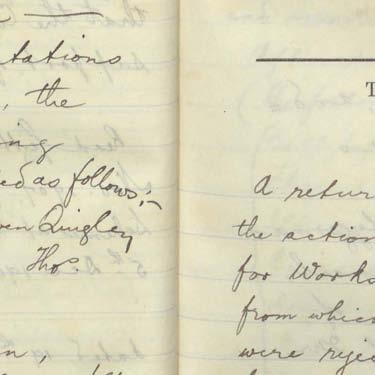 tations
, the
ing
ed as follows:—
en Quigley
Thos.
n,
T
A retur
the action
for Works
from which
were reje